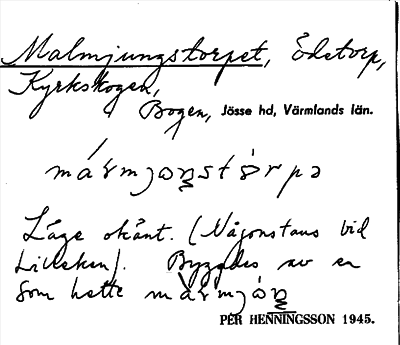 Malmjungstorpet, Ödetorp,
Kyrkskogen,
Bogen, Jösse hd, Värmlands län.
mármjɷnstɷ̀rpə
Läge okänt. (Någonstans vid
Lilleken). Byggdes av en
som hette màrmjɷ́n
PER HENNINGSSON 1945.